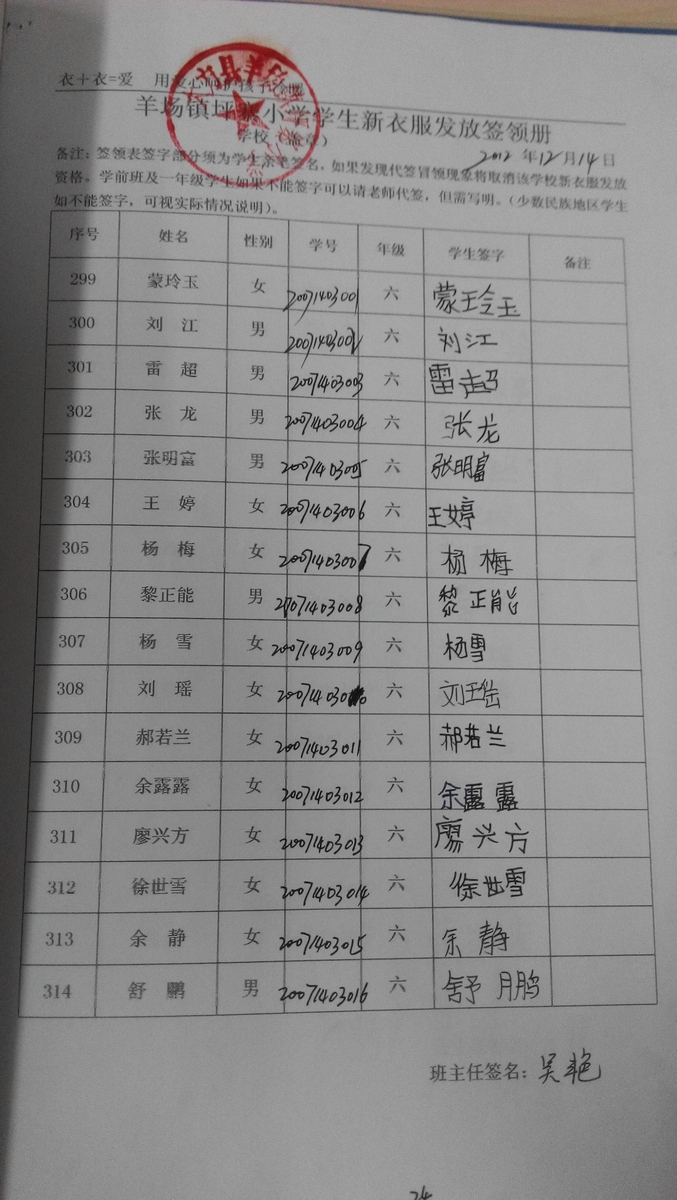 衣+衣=爱 用爱心呵护孩子
羊场镇坪 小学学生新衣服发放签领册
学校(盖章)
2012年12月14日
备注：签领表签字部分须为学生亲笔签名，如果发现代签冒领现象将取消该学校新衣服发放
资格。学前班及一年级学生如果不能签字可以请老师代签，但需写明。(少数民族地区学生
如不能签字，可视实际情况说明)。
序号 姓名 性别 学号 年级 学生签字 备注
299 蒙玲玉 女 20071403001 六 蒙玲玉
300 刘 江 男 20071403002 六 刘江
301 雷 超 男 20071403003 六 雷超
302 张 龙 男 20071403004 六 张龙
303 张明富 男 20071403005 六 张明富
304 王 婷 女 20071403006 六 王婷
305 杨 梅 女 20071403007 六 杨 梅
306 黎正能 男 20071403008 六 黎正能
307 杨 雪 女 20071403009 六 杨雪
308 刘 瑶 女 20071403010 六 刘瑶
309 郝若兰 女 20071403011 六 郝若兰
310 余露露 女 20071403012 六 余露露
311 廖兴方 女 20071403013 六 廖兴方
312 徐世雪 女 20071403014 六 徐世雪
313 余 静 女 20071403015 六 余 静
314 舒 鹏 男 20071403016 六 舒 鹏
班主任签名：吴艳